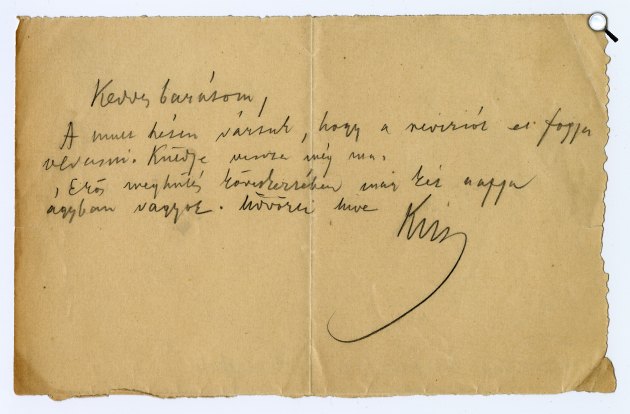 Kedves barátom,
A mult héten vártuk, hogy a revisiót el fogja
olvasni. Küldje vissza még ma.
Erős meghülés következtében már két napja
ágyban vagyok. hive
Kiss